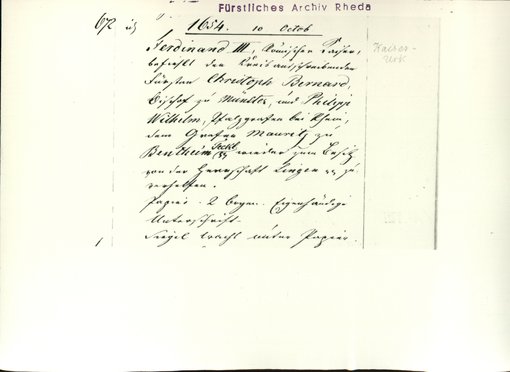 Fürstliches Archiv Rheda
672
1654. 10 Octob
Ferdinand III, Römischer Kaiser,
befiehlt den Kreisausschreibenden
Fürsten Christoph Bernard,
Bischof zu Münster, und Philipp
Wilhelm, Pfalzgrafen bei Rhein,
dem Grafen Mauritz zu
Bentheim Teckl. wieder zum Besitz
von der Herrschaft Lingen zu
verhelfen.
Papier. 2 Eigenhändige
Unterschrift.
Siegel unter Papier.
Kaiser-
Urk